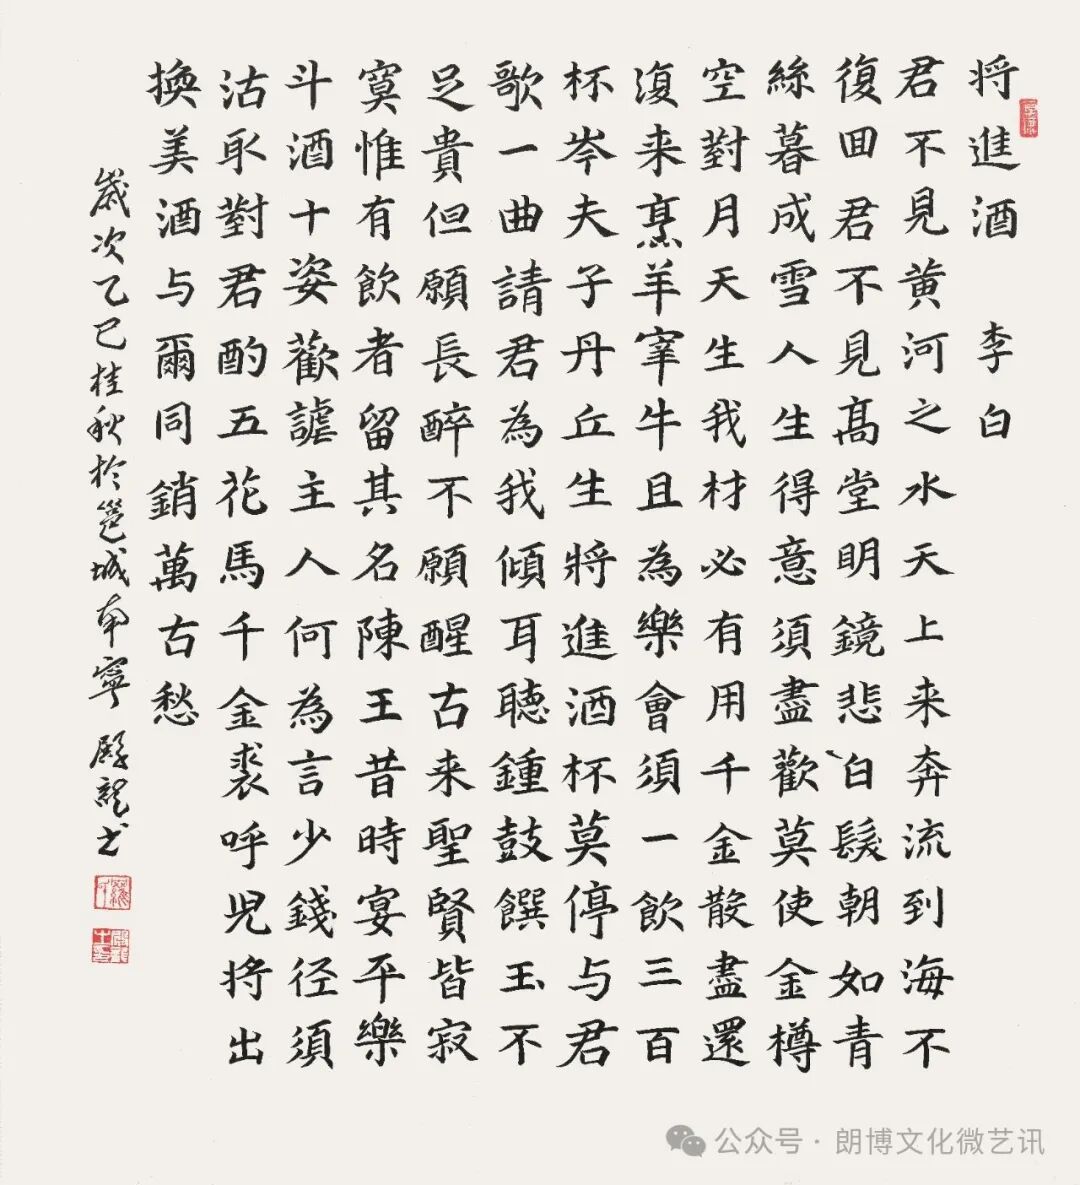 将進酒 李白
君不見黄河之水天上来奔流到海不
復回君不見髙堂明鏡悲白髮朝如青
絲暮成雪人生得意須盡歡莫使金樽
空對月天生我材必有用千金散盡還
復来烹羊宰牛且為樂會須一飲三百
杯岑夫子丹丘生將進酒杯莫停与君
歌一曲請君為我傾耳聽鍾鼓饌玉不
足貴但願長醉不願醒古来聖賢皆寂
寞惟有飲者留其名陳王昔時宴平樂
斗酒十姿歡謔主人何為言少錢径須
沽取對君酌五花馬千金裘呼児将出
換美酒与爾同銷萬古愁
嵗次乙巳桂秋於邕城南寧 殿龍书
公众号·朗博文化微艺讯